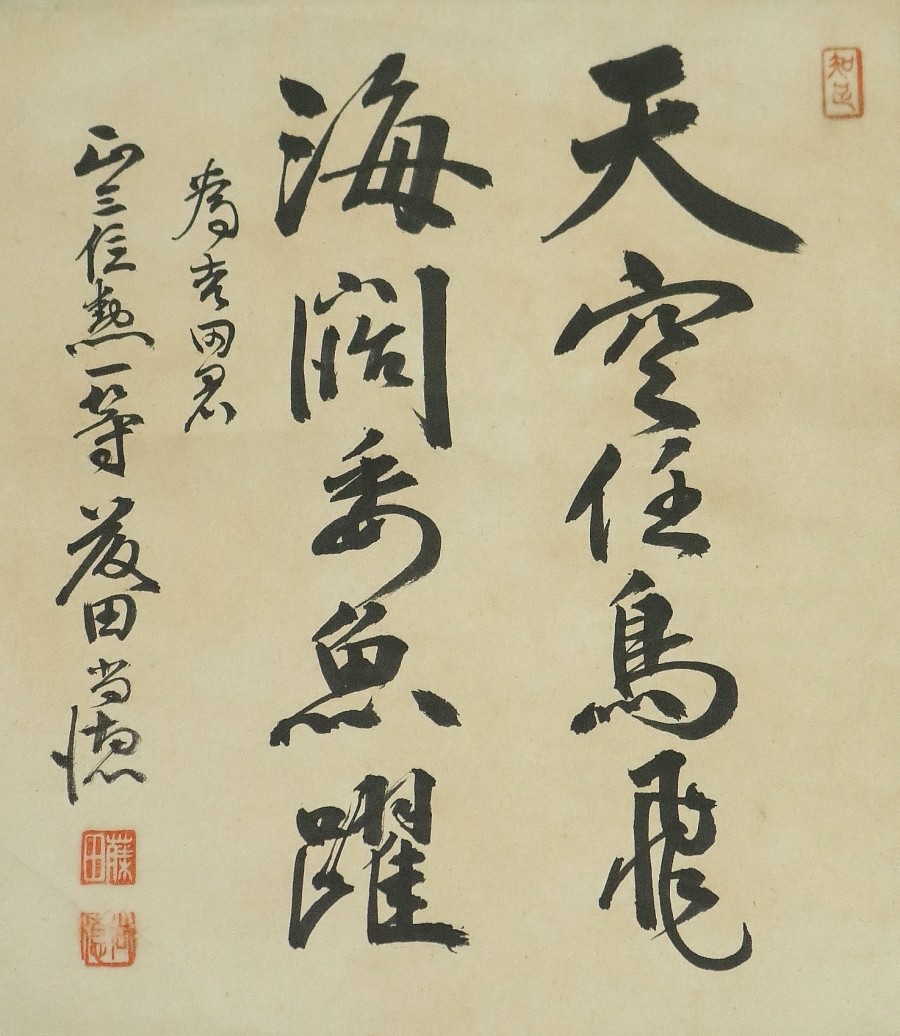 知足
天空任鳥飛
海闊委魚躍
為吉田君
正三位勲一等藤田尚徳
藤田
尚徳